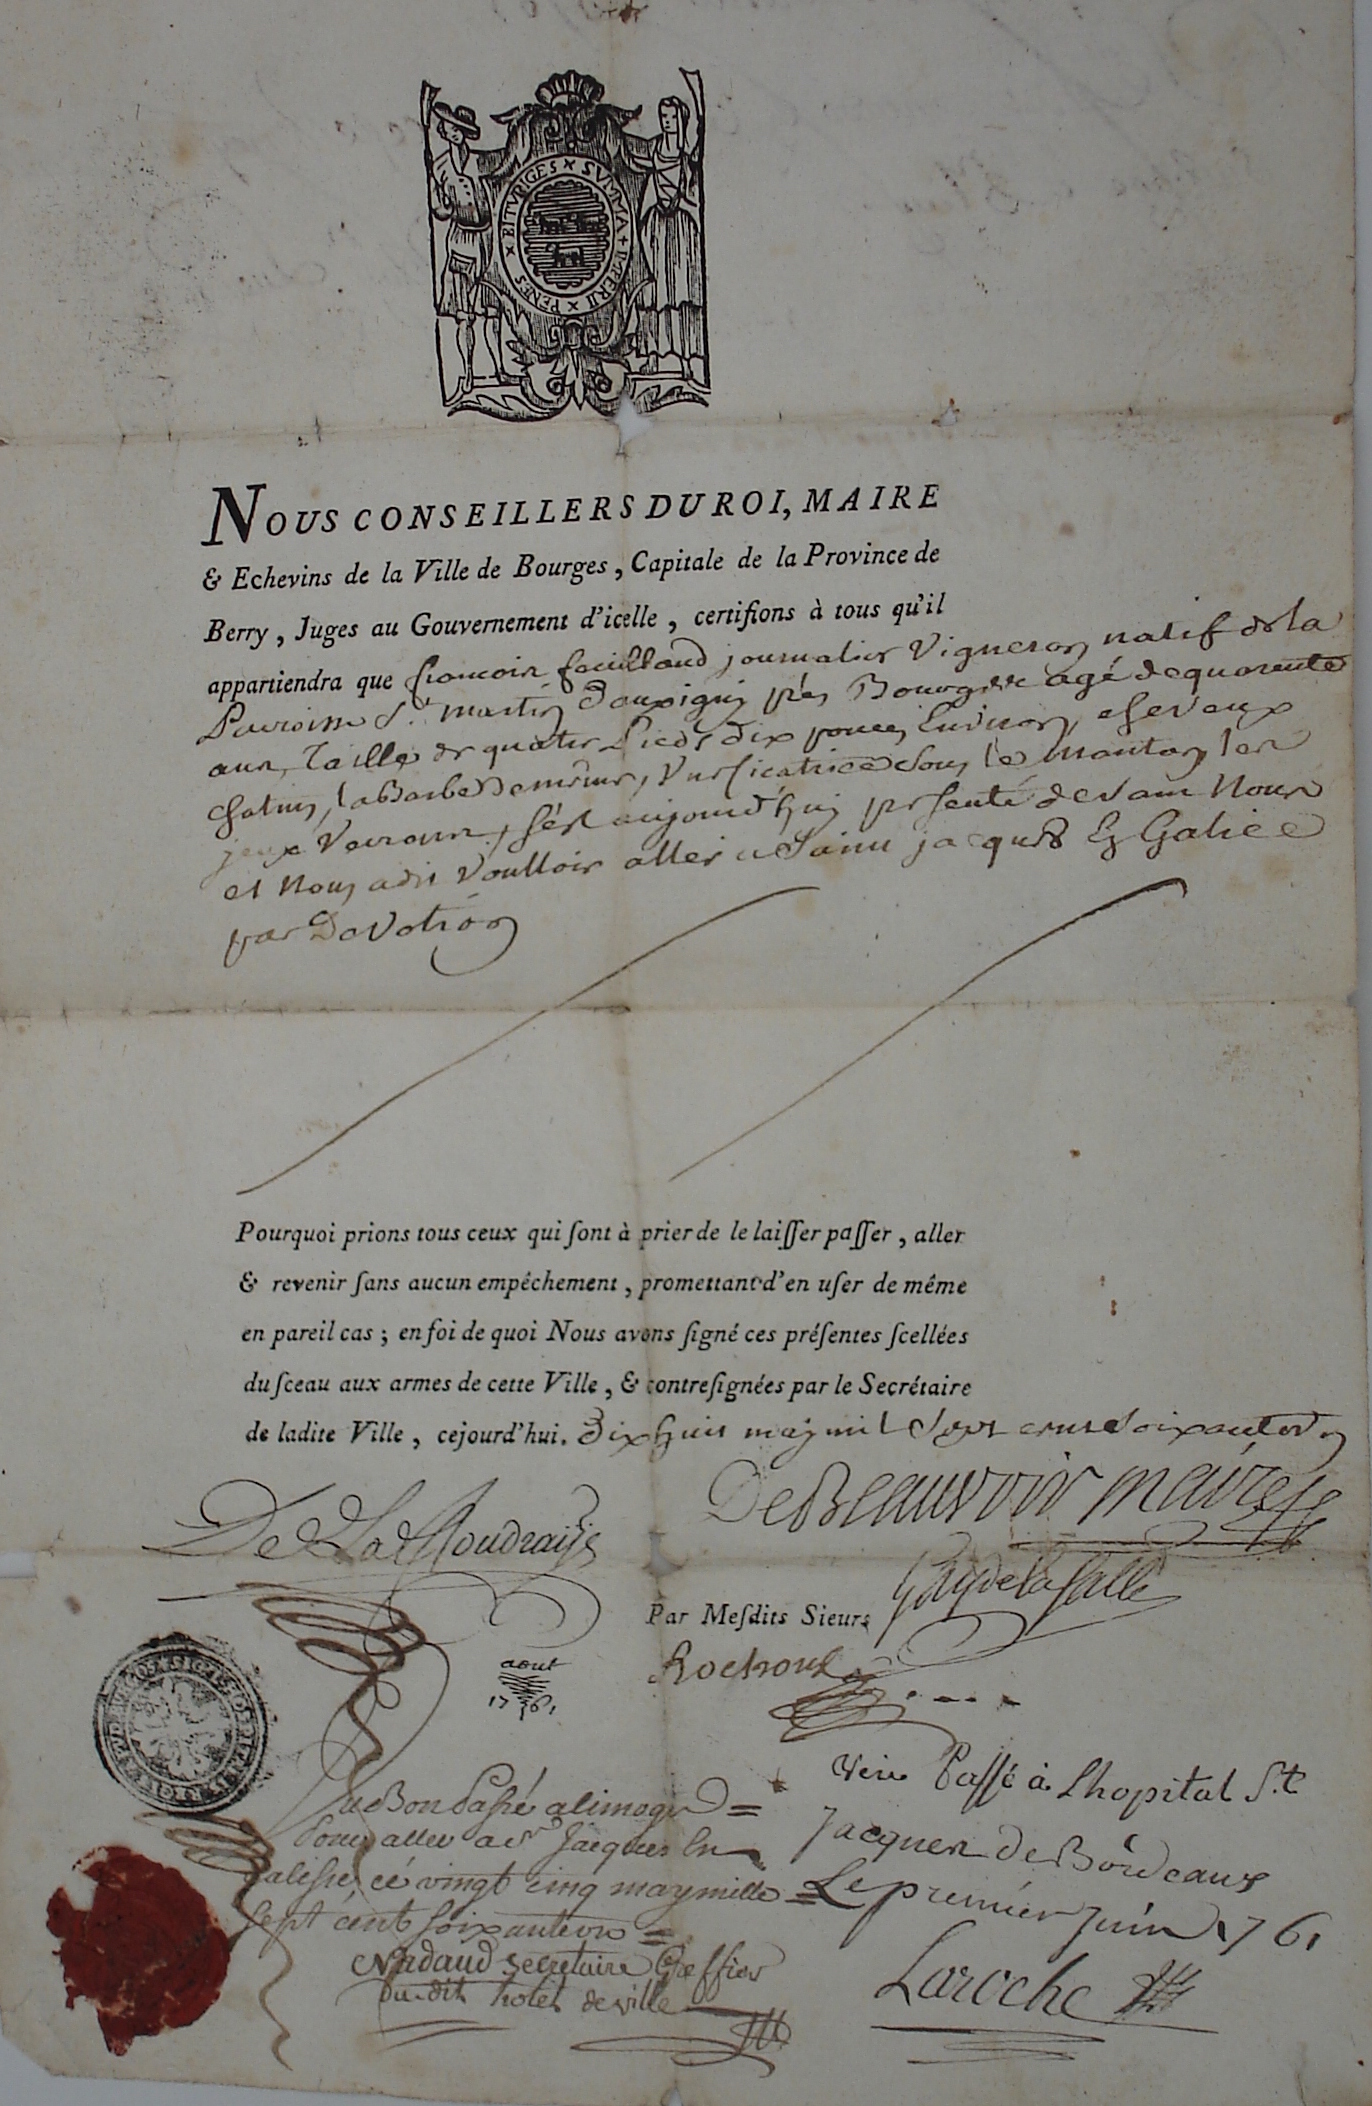 SUMMA + IMPERII × PENES × BITVRIGES ×
NOUS CONSEILLERS DU ROI, MAIRE
& Echevins de la Ville de Bourges, Capitale de la Province de
Berry, Juges au Gouvernement d'icelle, certifions à tous qu'il
appartiendra que francois journalier Vigneron natif de la
Parroisse St. martin dauxigny prés Bourges agé de quarente
ans, Taille de quatre Pieds dix pouces Environ, cheveux
chatins, la barbe de même, Une sicatrice sous le manton, les
yeux Verrons, s'est aujourd'huy presenté devant Nous
et Nous a dit Voulloir aller a Saint jacques En Galice
par Devotion
Pourquoi prions tous ceux qui ſont à prier de le laiſſer paſſer, aller
& revenir ſans aucun empêchement, promettant d'en uſer de même
en pareil cas ; en foi de quoi Nous avons ſigné ces préſentes ſcellées
du ſceau aux armes de cette Ville, & contreſignées par le Secrétaire
de ladite Ville, cejourd'hui. dix huit may mil Sept cent Soixante un
De Beauvoir maire
De La Coudraye
Gay de la Salle
Par Meſdits Sieurs
aout
1761
Vu Bon Passé a limoges =
Pour aller a St Jacques En
Galisse, cé vingt cinq may mille =
sept cént soixante un =
Nadaud secretaire Greffier
Du dit hotel de ville
Veu Passé à Lhopital St.
Jacques de Bordeaux
Le premier Juin 1761
Laroche